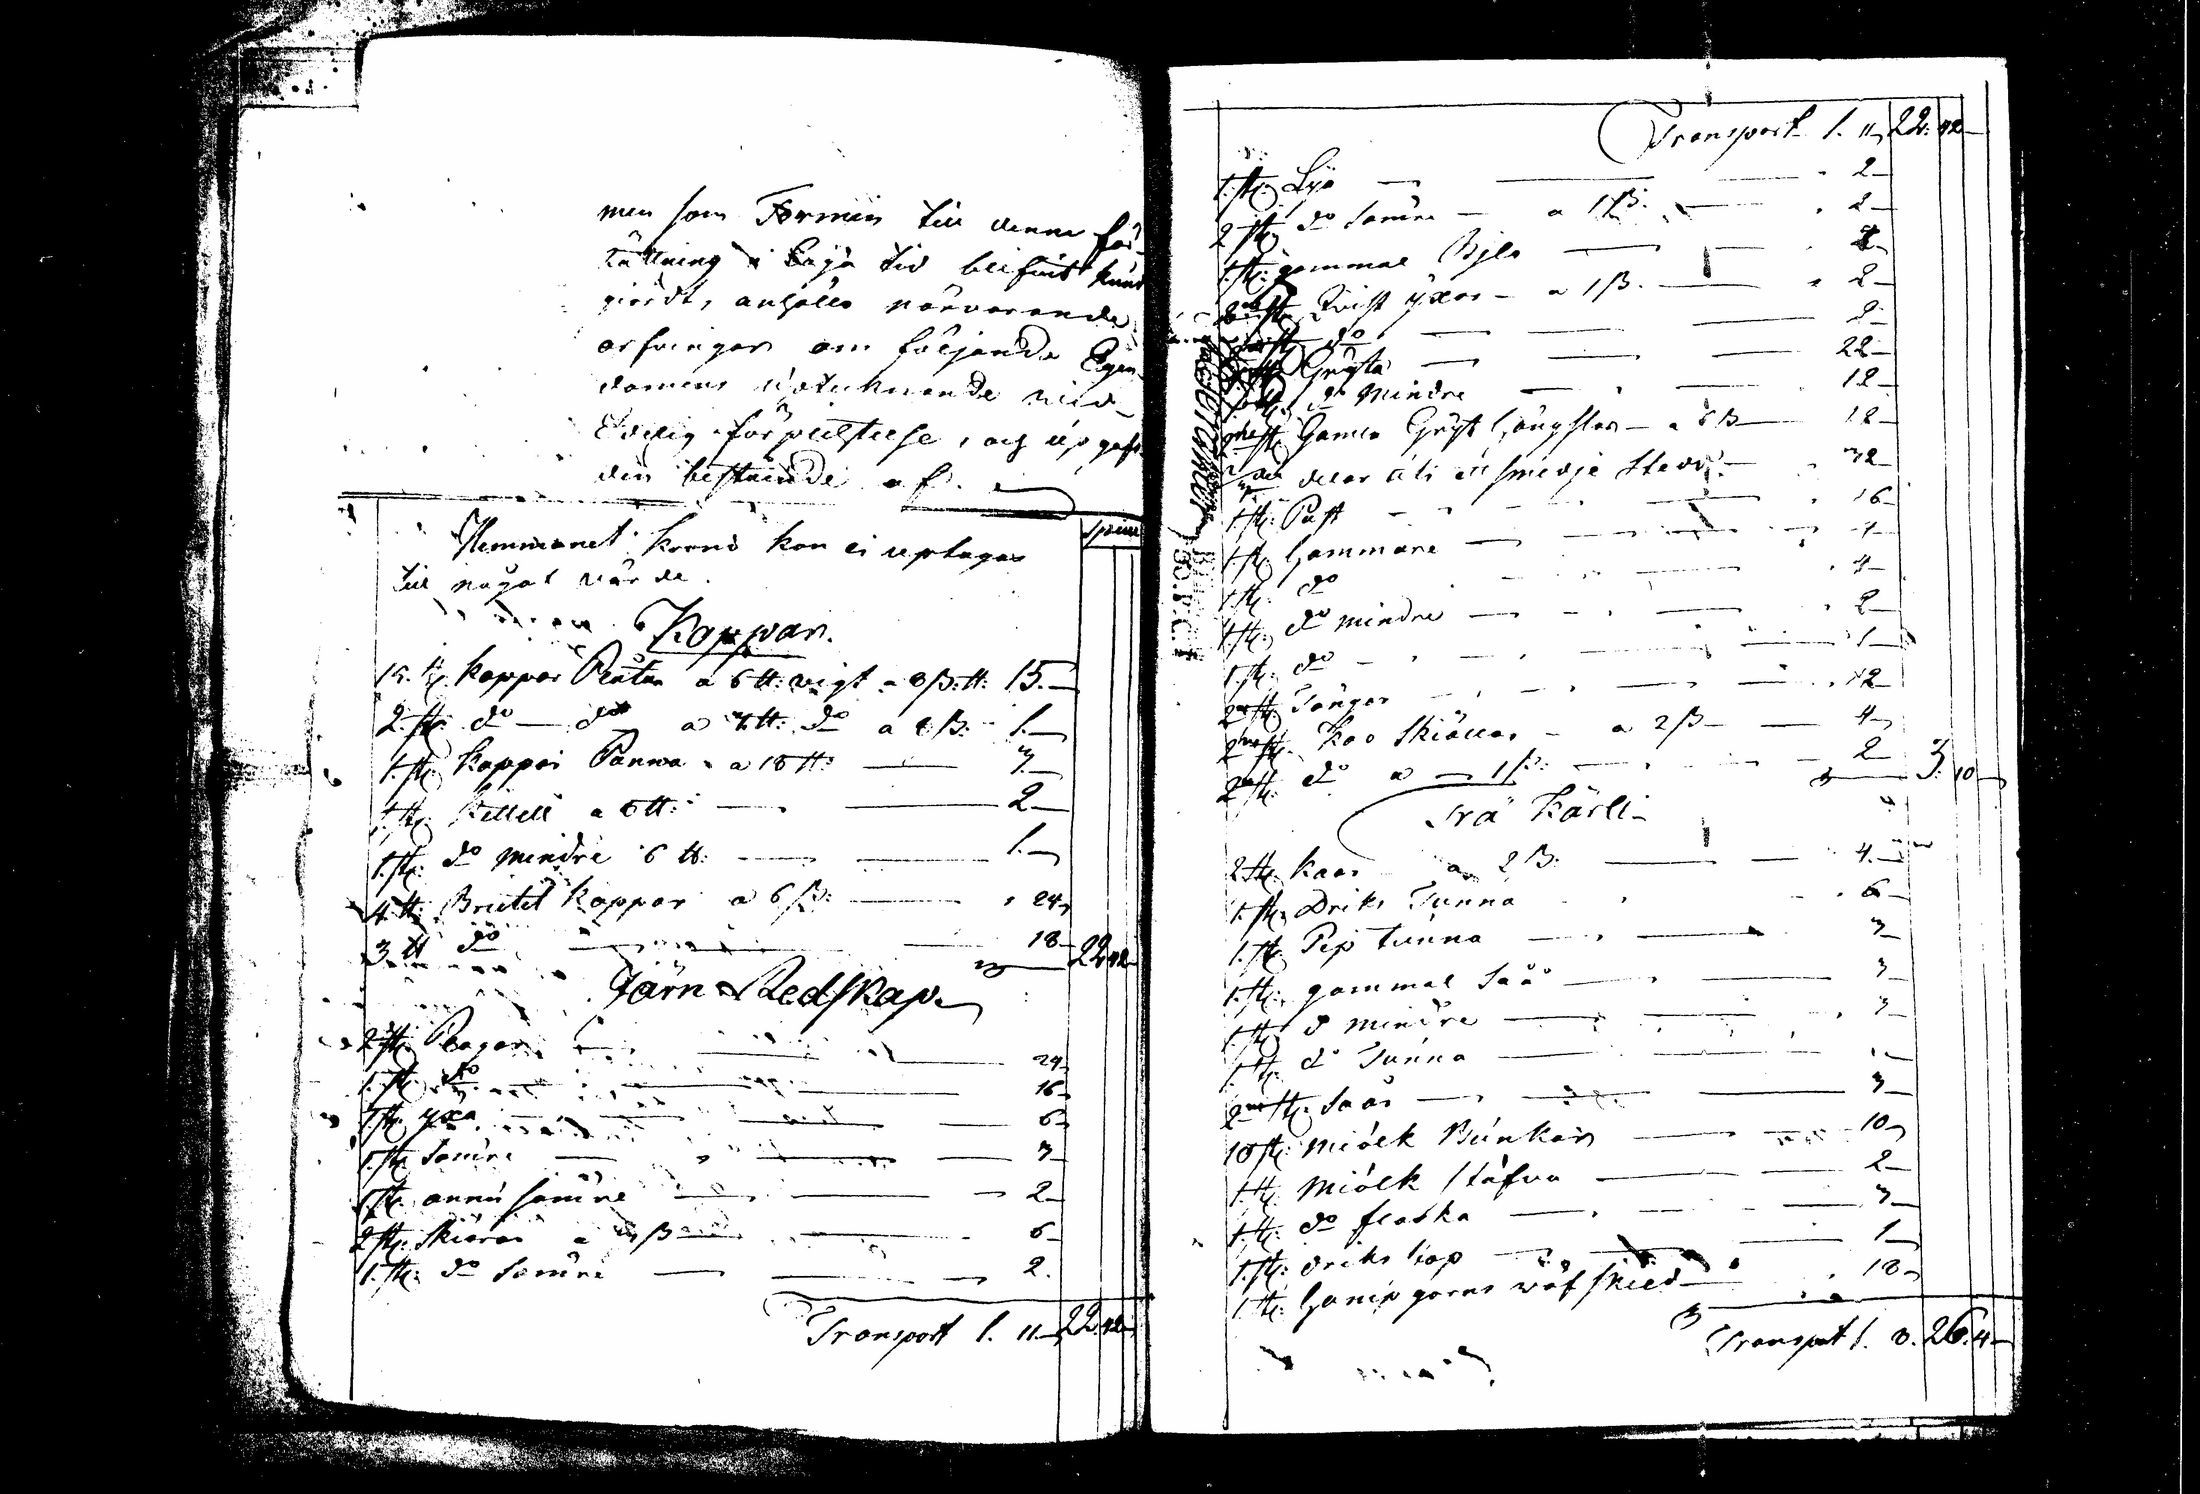 men som Termin till denne för
rättning i laga tid blifvit kund
giordt, anhölls närvarande
arfvingar om följande Egen
domens upteknande vid
Edelig förpliktelse, och upgafs
den bestående af.
Specie
Hemmanet krono kan ei uptagas
till något värde.
Koppar.
15. st. koppar Plåtar a 6 ℔. vigt a 8 ß. ℔. 15.
2. st. do do a 4 ℔. do a 8 ß. 1.
1. st. koppar Panna a 18 ℔: 3.
1. st. kettell a 8 ℔: 2
1. st. do mindre 6 ℔: 1.
4 ℔: Brutet koppar a 6 ß: 24
3 ℔ do 18 22 42
Järn Redskap.
2 st. Plogar 24
1. st. do 16
1. st. yxa 6
1. st. Samre 3
1. st. annu samre 2
2. st. Skiäror a 3 ß 6
1. st. do Samre 2.
Transport l. 11 22. 42
Transport l. 11 22. 42
1. st. Lya 2
2 st. do samre a 1 ß. 2
1. st. gammal Bjla 4
2 st. Qvist yxor a 1 ß. 2
do 2
Gryta 22
do Mindre 12
st. Gamla Gryt a 6 ß 12
delar uti en smedje 32
1. st. Pust 16
1. st. hammare 4
1. st. do 4
1. st. do mindre 2
1. st. do 1
2 st. Tånger 12
2 st. Koo Skiällor a 2 ß 4
2 st. do a 1 ß: 2 3. 10
Trä kärll
2 st. kaar a 2 ß: 4.
1. st. Driks Tunna 6
1. st. Pip tunna 3
1. st. gammal Såå 3
1. st. do mindre 3
1. st. do Tunna
2 st. Såår 3
10 st. miölk Bunkar 10
1. st. Miölk Stäfva 2
1. st. do flaska 3
1. st. driks kap 1
1. st. hamp garns wäf skied 18
Transport l. 8. 26. 4